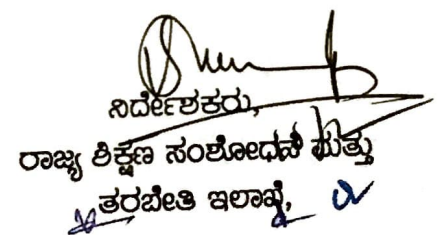 ನಿರ್ದೇಶಕರು,
ರಾಜ್ಯ ಶಿಕ್ಷಣ ಸಂಶೋಧನೆ ಮತ್ತು
ತರಬೇತಿ ಇಲಾಖೆ,